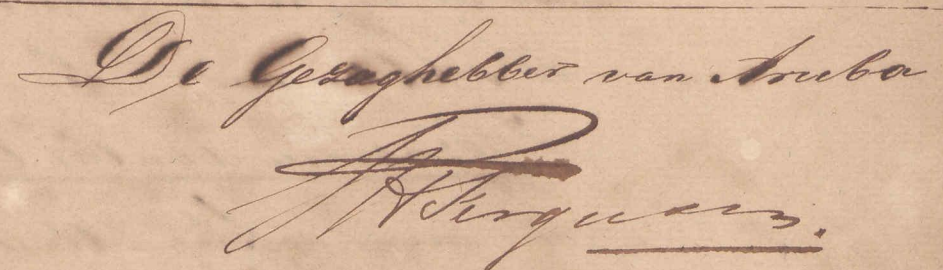 De Gezaghebber van Aruba
Ferguson.